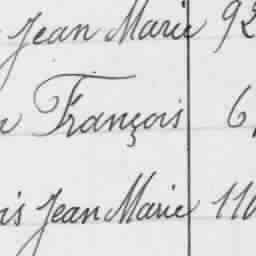 Jean Marie 92
François 6
Jean Marie 110